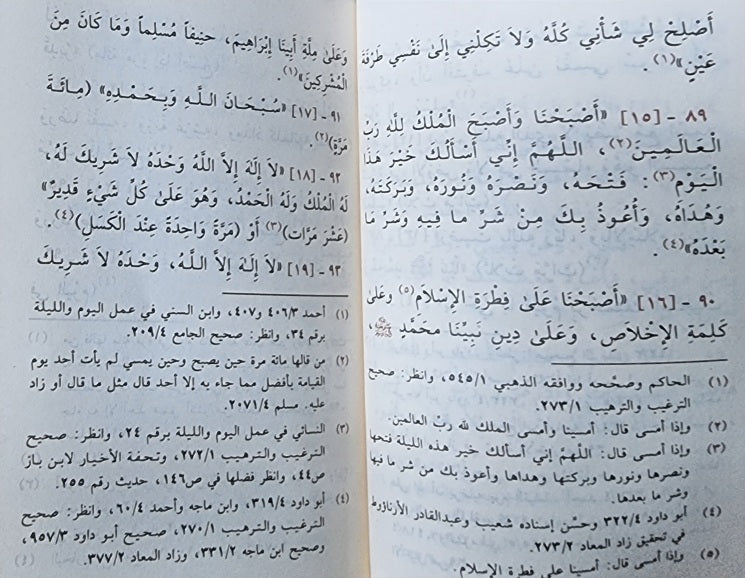 أَصْلِحْ لِي شَأْنِي كُلَّهُ وَلاَ تَكِلْنِي إِلَىٰ نَفْسِي طَرْفَةَ
عَيْنٍ»(١).
٨٩ - [١٥] «أَصْبَحْنَا وَأَصْبَحَ الْمُلْكُ لِلَّهِ رَبِّ
الْعَالَمِينَ(٢)، اللَّهُمَّ إِنِّي أَسْأَلُكَ خَيْرَ هَذَا
الْيَوْمِ(٣): فَتْحَهُ، وَنَصْرَهُ وَنُورَهُ، وَبَرَكَتَهُ،
وَهُدَاهُ، وَأَعُوذُ بِكَ مِنْ شَرِّ مَا فِيهِ وَشَرِّ مَا
بَعْدَهُ»(٤).
٩٠ - [١٦] «أَصْبَحْنَا عَلَىٰ فِطْرَةِ الإِسْلاَمِ(٥) وَعَلَىٰ
كَلِمَةِ الإِخْلاَصِ، وَعَلَىٰ دِينِ نَبِيِّنَا مُحَمَّدٍ ﷺ،
(١) الحاكم وصححه ووافقه الذهبي ٥٤٥/١، وانظر: صحيح
الترغيب والترهيب ٢٧٣/١.
(٢) وإذا أمسى قال: أمسينا وأمسى الملك لله ربّ العالمين.
(٣) وإذا أمسى قال: اللهمّ إني أسألك خير هذه الليلة فتحها
ونصرها ونورها وبركتها وهداها وأعوذ بك من شر ما فيها
وشر ما بعدها.
(٤) أبو داود ٣٢٢/٤ وحسّن إسناده شعيب وعبدالقادر الأرناؤوط
في تحقيق زاد المعاد ٢٧٣/٢.
(٥) وإذا أمسى قال: أمسينا على فطرة الإسلام.
وَعَلَىٰ مِلَّةِ أَبِينَا إِبْرَاهِيمَ، حَنِيفاً مُسْلِماً وَمَا كَانَ مِنَ
الْمُشْرِكِينَ»(١).
٩١ - [١٧] «سُبْحَانَ اللَّهِ وَبِحَمْدِهِ» (مِائَةَ
مَرَّةٍ)(٢).
٩٢ - [١٨] «لاَ إِلَهَ إِلاَّ اللَّهُ وَحْدَهُ لاَ شَرِيكَ لَهُ،
لَهُ الْمُلْكُ وَلَهُ الْحَمْدُ، وَهُوَ عَلَىٰ كُلِّ شَيْءٍ قَدِيرٌ»
(عَشْرَ مَرَّات)(٣) أَوْ (مَرَّةً وَاحِدَةً عِنْدَ الْكَسَلِ)(٤).
٩٣ - [١٩] «لاَ إِلَهَ إِلاَّ اللَّهُ، وَحْدَهُ لاَ شَرِيكَ
(١) أحمد ٤٠٦/٣ و٤٠٧، وابن السني في عمل اليوم والليلة
برقم ٣٤، وانظر: صحيح الجامع ٢٠٩/٤.
(٢) من قالها مائة مرة حين يصبح وحين يمسي لم يأت أحد يوم
القيامة بأفضل مما جاء به إلا أحد قال مثل ما قال أو زاد
عليه. مسلم ٢٠٧١/٤.
(٣) النسائي في عمل اليوم والليلة برقم ٢٤، وانظر: صحيح
الترغيب والترهيب ٢٧٢/١، وتحفة الأخيار لابن باز
ص٤٤، وانظر فضلها في ص١٤٦، حديث رقم ٢٥٥.
(٤) أبو داود ٣١٩/٤، وابن ماجه وأحمد ٦٠/٤، وانظر: صحيح
الترغيب والترهيب ٢٧٠/١، صحيح أبو داود ٩٥٧/٣،
وصحيح ابن ماجه ٣٣١/٢، وزاد المعاد ٣٧٧/٢.